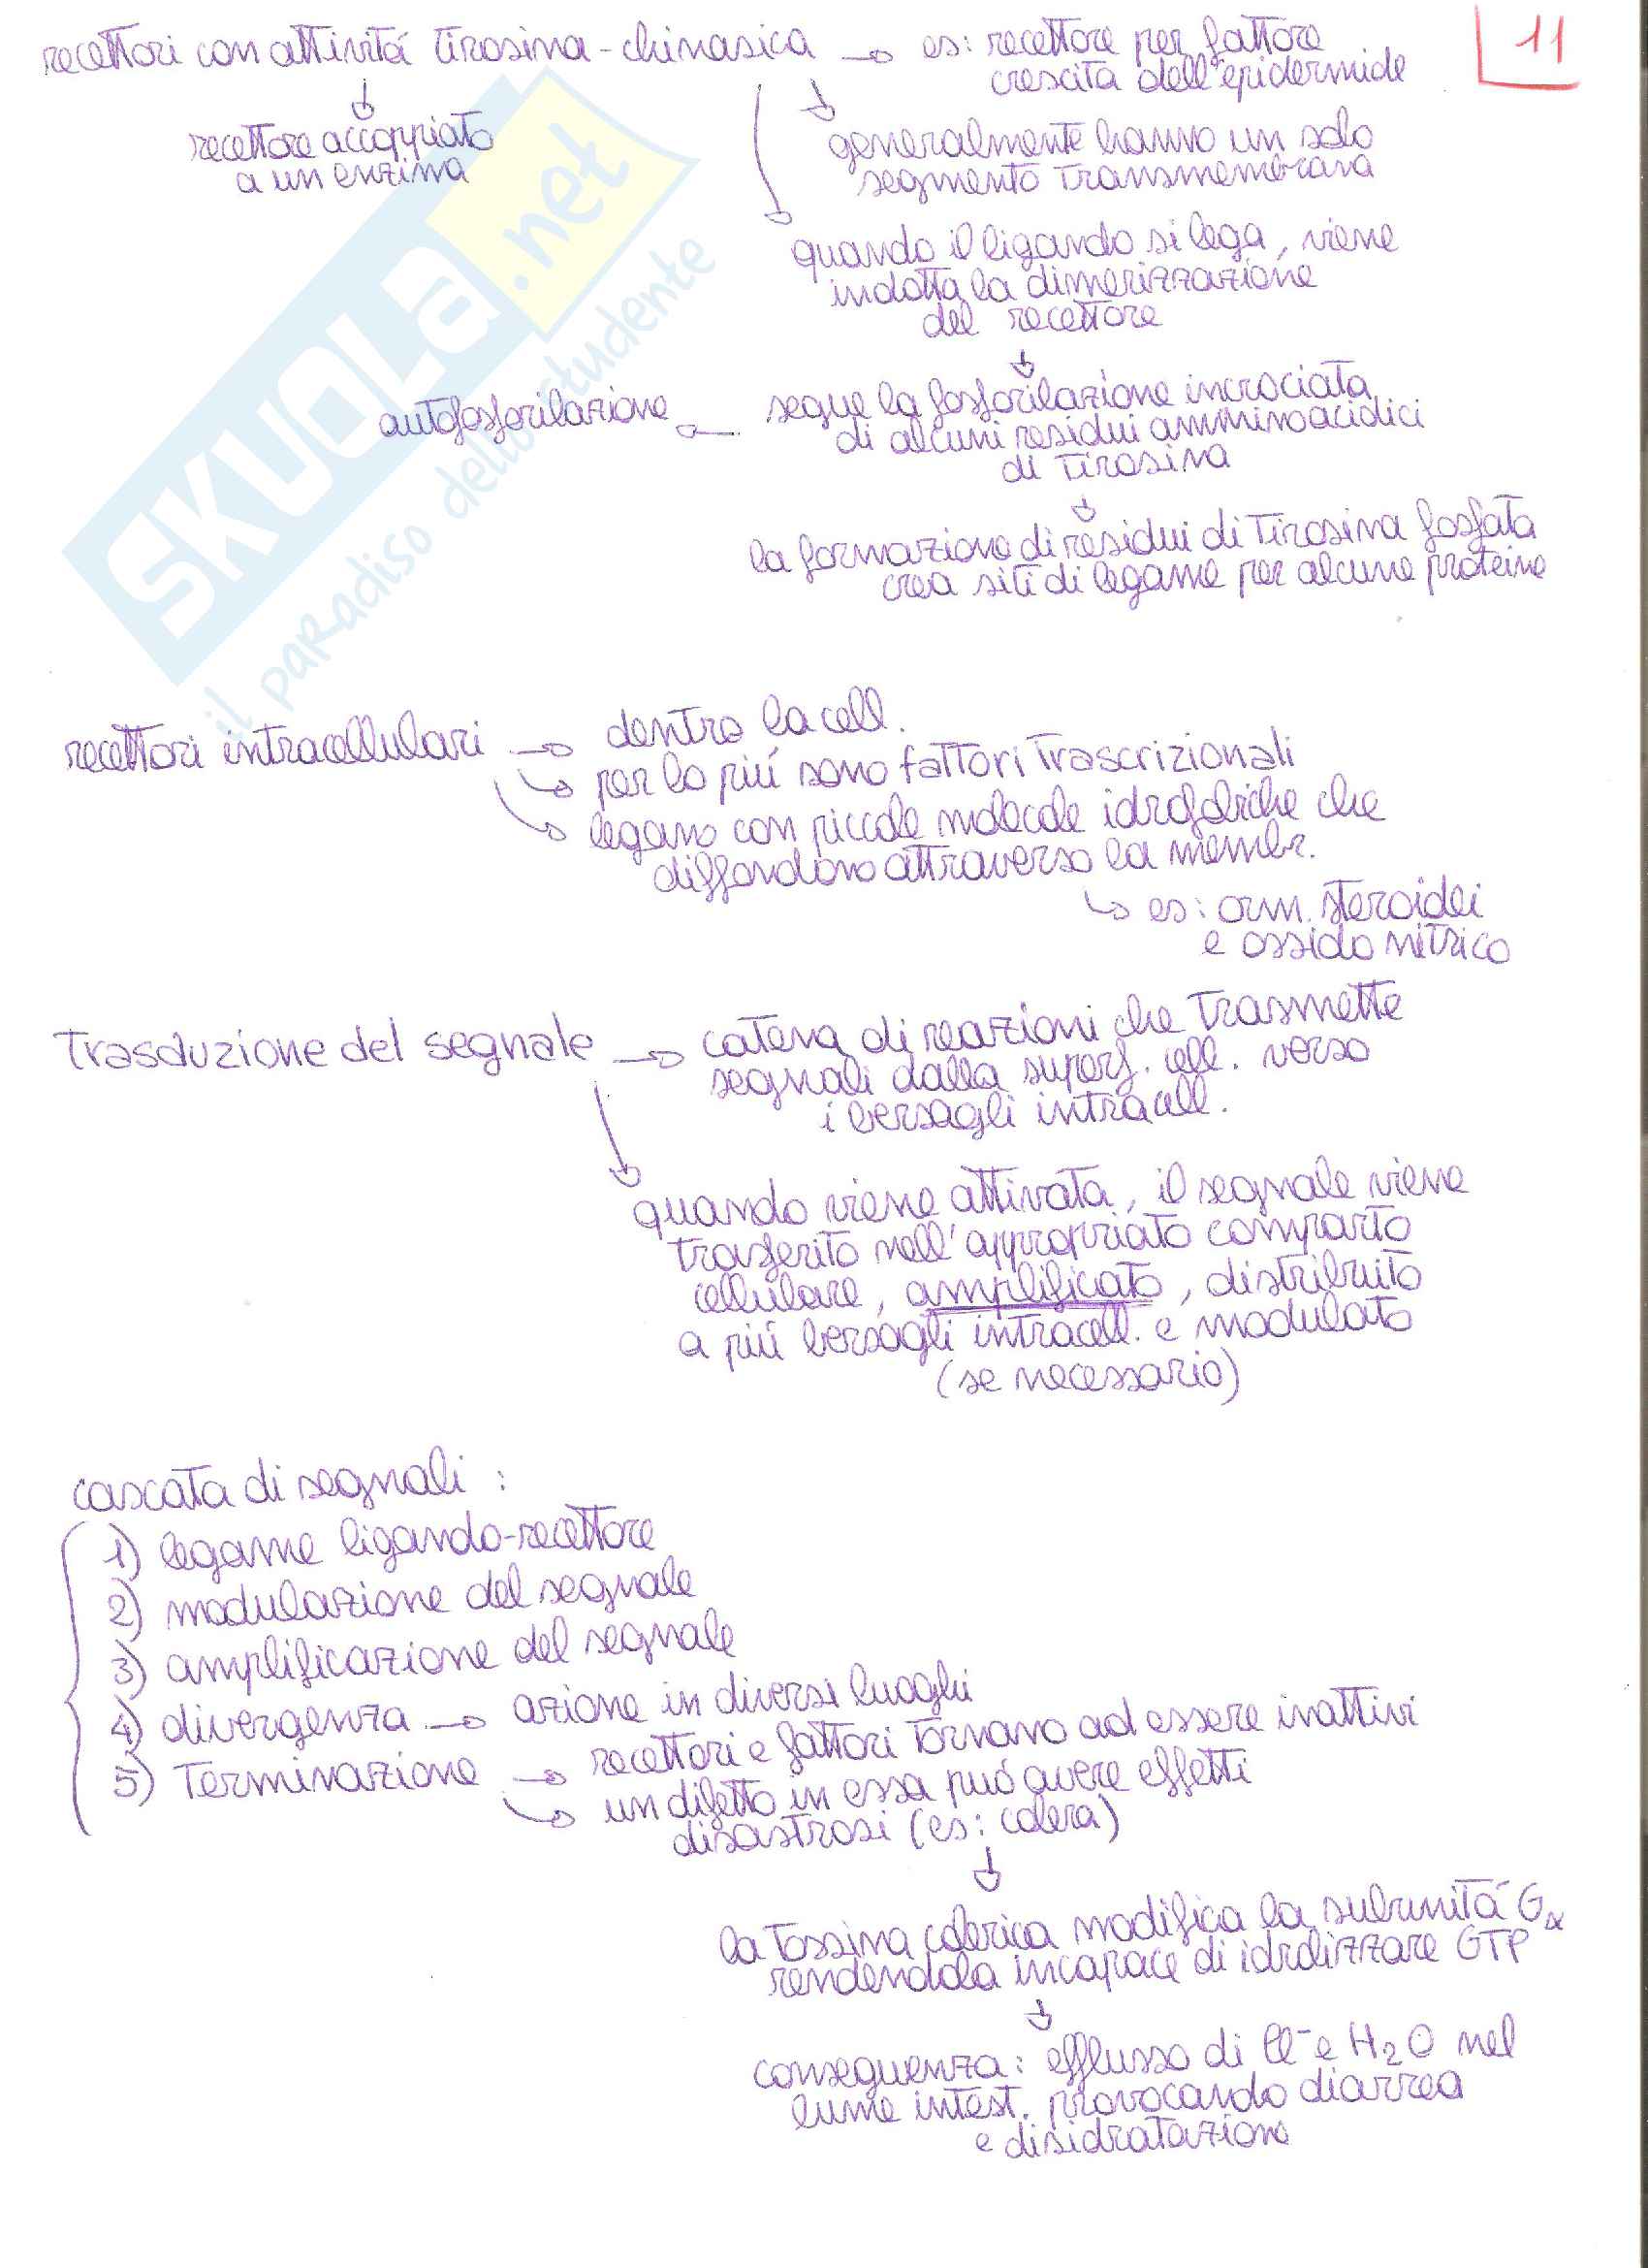 recettori con attivitá tirosina-chinasica → es: recettore per fattore
crescita dell'epidermide
11
recettore accoppiato
a un enzima
generalmente hanno un solo
segmento transmembrana
quando il ligando si lega, viene
indotta la dimerizzazione
del recettore
autofosforilazione ← segue la fosforilazione incrociata
di alcuni residui amminoacidici
di tirosina
la formazione di residui di tirosina fosfata
crea siti di legame per alcune proteine
SKUOLA.net
il paradiso dello studente
recettori intracellulari → dentro la cell.
per lo piú sono fattori trascrizionali
legano con piccole molecole idrofobiche che
diffondono attraverso la membr.
es: orm. steroidei
e ossido nitrico
trasduzione del segnale → catena di reazioni che trasmette
segnali dalla superf. cell. verso
i bersagli intracell.
quando viene attivata, il segnale viene
trasferito nell'appropriato comparto
cellulare, amplificato, distribuito
a piú bersagli intracell. e modulato
(se necessario)
cascata di segnali :
1) legame ligando-recettore
2) modulazione del segnale
3) amplificazione del segnale
4) divergenza → azione in diversi luoghi
5) terminazione → recettori e fattori tornano ad essere inattivi
un difetto in essa puó avere effetti
disastrosi (es: colera)
la tossina colerica modifica la subunitá Gα
rendendola incapace di idrolizzare GTP
conseguenza: efflusso di Cl⁻ e H₂O nel
lume intest. provocando diarrea
e disidratazione